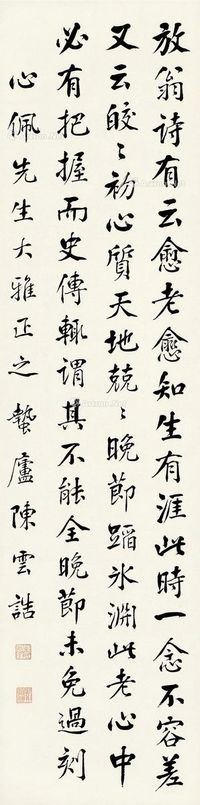 放翁詩有云愈老愈知生有涯此時一念不容差
又云皎〻初心質天地兢〻晚節蹈冰淵此老心中
必有把握而史傳輒謂其不能全晚節未免過刻
心佩先生大雅正之 蟄廬陳雲誥